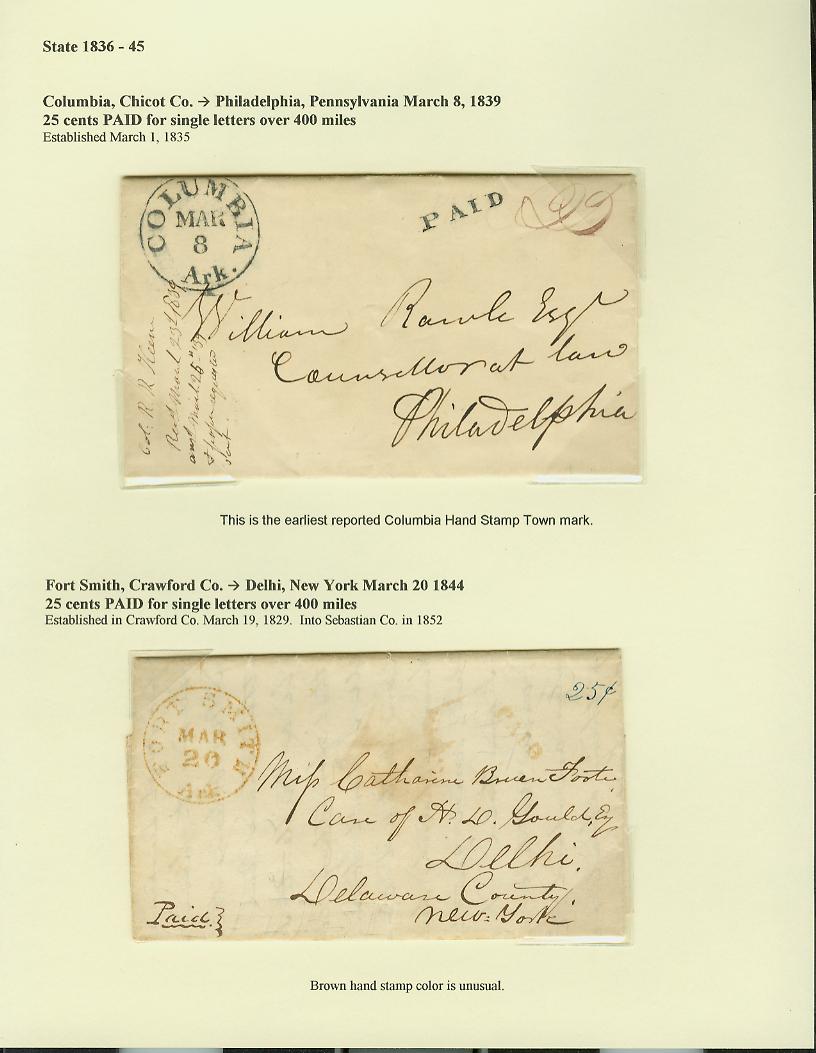 State 1836 - 45
Columbia, Chicot Co. → Philadelphia, Pennsylvania March 8, 1839
25 cents PAID for single letters over 400 miles
Established March 1, 1835
COLUMBIA
MAR
8
Ark.
PAID
25
William Rawle Esqr
Counsellor at law
Philadelphia
Col. R. R. Keene
Recd March 23d 1839
and March 26th '39
sent.
This is the earliest reported Columbia Hand Stamp Town mark.
Fort Smith, Crawford Co. → Delhi, New York March 20 1844
25 cents PAID for single letters over 400 miles
Established in Crawford Co. March 19, 1829.  Into Sebastian Co. in 1852
FORT SMITH
MAR
20
Ark.
PAID
25¢
Miss Catharine Bruen Foote
Care of H. D. Gould, Esq
Delhi.
Delaware County.
New=York
Paid
Brown hand stamp color is unusual.